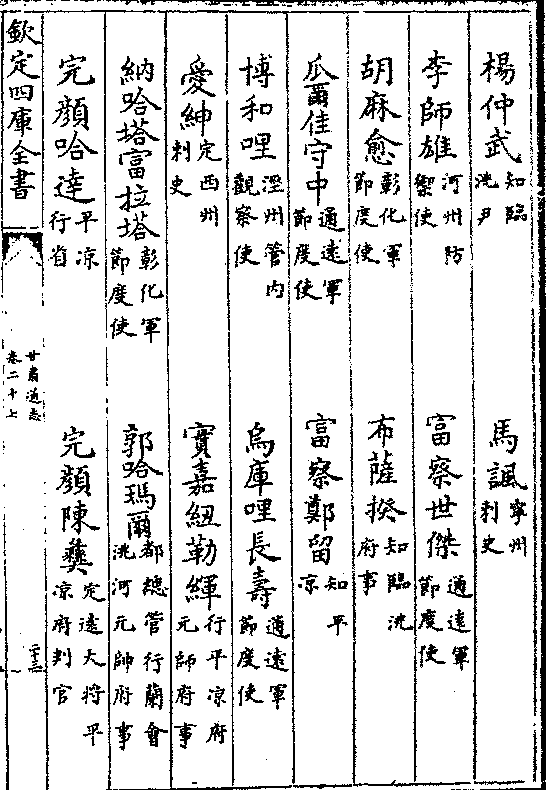 楊仲武知臨洮尹　馬諷寧州刺史
李師雄河州防禦使　富察世傑通遠軍節度使
胡麻愈彰化軍節度使　布薩揆知臨洮府事
瓜爾佳守中通遠軍節度使　富察鄭留知平凉
博和哩涇州管內觀察使　烏庫哩長壽通遠軍節度使
愛紳定西州刺史　實嘉紐勒緷行平凉府元帥府事
納哈塔富拉塔彰化軍節度使　郭哈瑪爾都總管行蘭會洮河元帥府事
完顏哈達平凉行省　完顏陳彝定遠大將平凉府判官
欽定四庫全書
甘肅通志
卷二十七
二十三